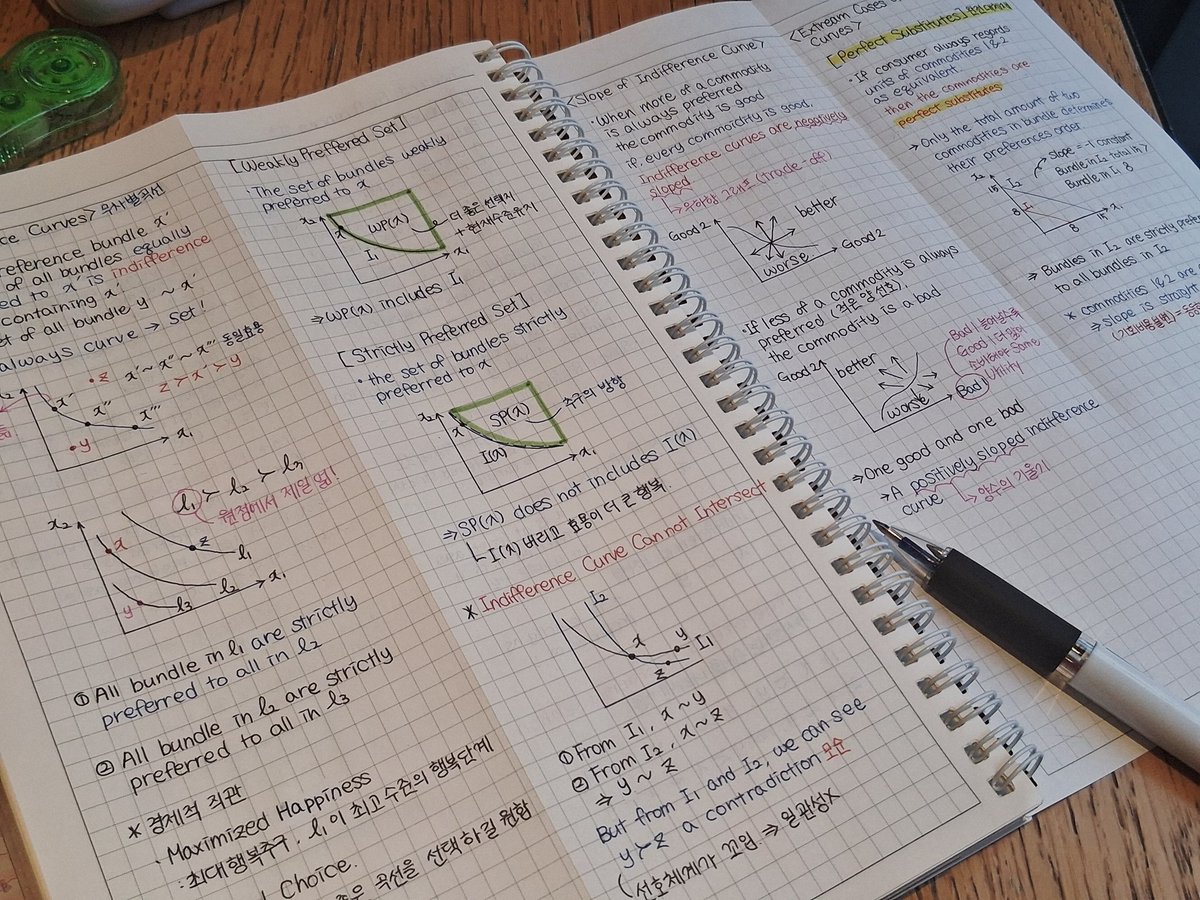 ce Curves> 무차별곡선
reference bundle x'
of all bundles equally
ed to x' is indifference
containing x'
et of all bundle, y ~ x'
always curve → Set!
x' ~ x'' ~ x''' 동일효용
z > x' > y
•z
x'
x''
x'''
•y
x₁
l₁ > l₂ > l₃
원점에서 제일 멂!
x₂
x
z
l₁
y
l₃
l₂
x₁
① All bundle in l₁ are strictly
preferred to all in l₂
② All bundle in l₂ are strictly
preferred to all in l₃
* 경제적 직관
· Maximized Happiness
: 최대행복추구. l₁이 최고수준의 행복단계
Choice.
좋은 곡선을 선택하길 원함
[Weakly Preffered Set]
· The set of bundles weakly
preferred to x
x₂
x
WP(x)
I₁
x₁
더 좋은 선택지
+ 현재수준유지
⇒ WP(x) includes I₁
[Strictly Preferred Set]
· the set of bundles strictly
preferred to x
x₂
x
SP(x)
추구의 방향
I(x)
x₁
⇒ SP(x) does not includes I(x)
I(x) 버리고 효용이 더 큰 행복.
* Indifference Curve Cannot Intersect
I₂
x
y
I₁
z
① From I₁, x ~ y
② From I₂, x ~ z
⇒ y ~ z
But from I₁ and I₂, we can see
y > z a contradiction 모순
(선호체계가 꼬임 ⇒ 일관성x
<Slope of Indifference Curve>
· When more of a commodity
is always preferred
the commodity is good
if, every commoidity is good,
Indifference curves are negatively
sloped
우하향 그래프 (trade-off)
Good 2
better
worse
Good 2
· If less of a commodity is always
preferred (적은 양 선호).
the commodity is a bad
Good 2
better
worse
Bad
Good
Same
Utility
⇒ One good and one bad
→ A positively sloped indifference
curve
양수의 기울기
<Extream Cases
Curves>
[Perfect Substitutes]
· If consumer always regards
units of commodities 1&2
as equivalent.
then the commodities are
perfect substitutes
→ Only the total amount of two
commodities in bundle determines
their preferences order
x₂
15
I₂
8
I₁
8
15
x₁
Slope = -1 constant
Bundle in I₂ total 15
Bundle in I₁ 8
⇒ Bundles in I₂ are strictly prefe
to all bundles in I₂
* commodities 1&2 are
⇒ slope is straight